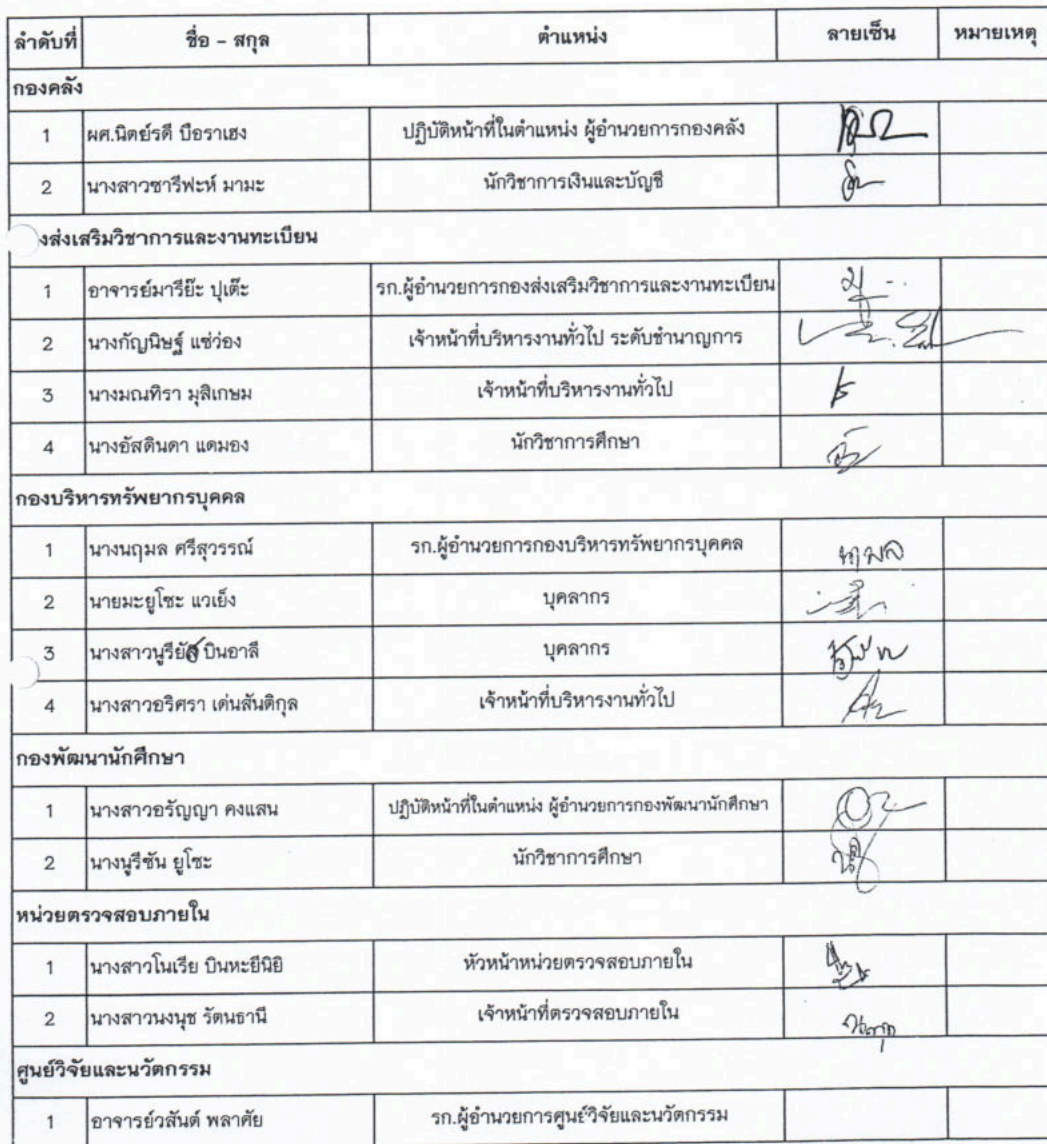 ลำดับที่ ชื่อ - สกุล ตำแหน่ง ลายเซ็น หมายเหตุ
กองคลัง
1 ผศ.นิตย์รดี บือราเฮง ปฏิบัติหน้าที่ในตำแหน่ง ผู้อำนวยการกองคลัง
2 นางสาวซารีฟะห์ มามะ นักวิชาการเงินและบัญชี
งส่งเสริมวิชาการและงานทะเบียน
1 อาจารย์มารีย๊ะ ปุเต๊ะ รก.ผู้อำนวยการกองส่งเสริมวิชาการและงานทะเบียน
2 นางกัญนิษฐ์ แซ่ว่อง เจ้าหน้าที่บริหารงานทั่วไป ระดับชำนาญการ
3 นางมณทิรา มุสิเกษม เจ้าหน้าที่บริหารงานทั่วไป
4 นางอัสดินดา แดมอง นักวิชาการศึกษา
กองบริหารทรัพยากรบุคคล
1 นางนฤมล ศรีสุวรรณ์ รก.ผู้อำนวยการกองบริหารทรัพยากรบุคคล นฤมล
2 นายมะยูโซะ แวเย็ง บุคลากร
3 นางสาวนูรียัส บินอาลี บุคลากร
4 นางสาวอริศรา เด่นสันติกุล เจ้าหน้าที่บริหารงานทั่วไป
กองพัฒนานักศึกษา
1 นางสาวอรัญญา คงแสน ปฏิบัติหน้าที่ในตำแหน่ง ผู้อำนวยการกองพัฒนานักศึกษา
2 นางนูรีซัน ยูโซะ นักวิชาการศึกษา
หน่วยตรวจสอบภายใน
1 นางสาวโนเรีย บินหะยีนิยิ หัวหน้าหน่วยตรวจสอบภายใน
2 นางสาวนงนุช รัตนธานี เจ้าหน้าที่ตรวจสอบภายใน
ศูนย์วิจัยและนวัตกรรม
1 อาจารย์วสันต์ พลาศัย รก.ผู้อำนวยการศูนย์วิจัยและนวัตกรรม